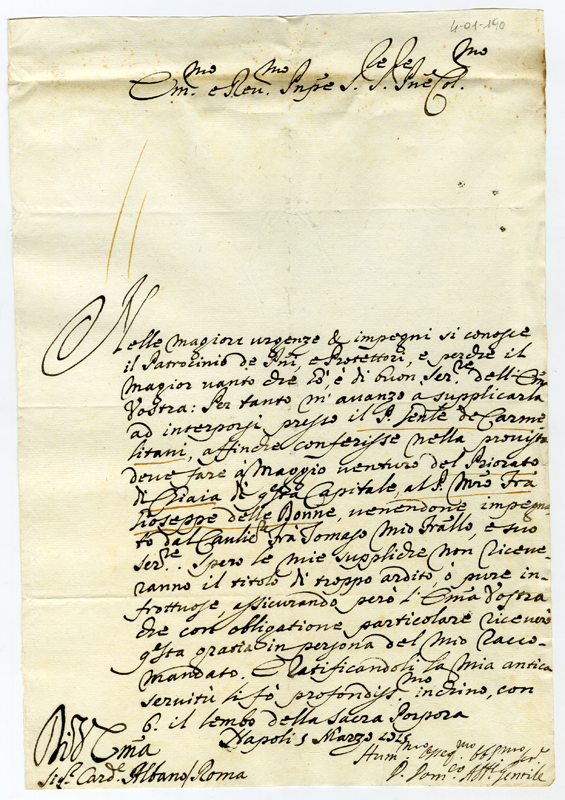 4-01-190
Em.mo e Rev.mo Pnpe S. P.le Pne Col.mo
Nelle magiori urgenze & impegni si conosce
il Patrocinio de Pni, e Protettori, e perche il
magior vanto che hò, è di buon Ser.re dell'Em.
Vostra: Per tanto m'avanzo a supplicarla
ad interporsi presso il P. Gen.le de Carme
litani, affinche conferisse nella provista
deve fare à Maggio venturo del Priorato
di Chiaia di q.esta Capitale, al P. Mro Fra
Gioseppe delle Donne, venendone impegna
to dal Cavlie.re frà Tomaso mio Fratllo, e suo
Ser.re. Spero le mie suppliche non riceve
ranno il titolo di troppo ardito, ò pure in-
frottuose, assicurando però l'Em.a Vostra
che con obligatione particolare riceverò
q.esta gratia in persona del mio racco-
mandato. E ratificandoli la mia antica
servitù li fò profondiss.mo inchino, con
b. il lembo della Sacra Porpora
Di V. Em.a Napoli 5 Marzo
Hum.mo
Sig.r Card.e Albano Roma
D. Dom.co Ab.e Gentile